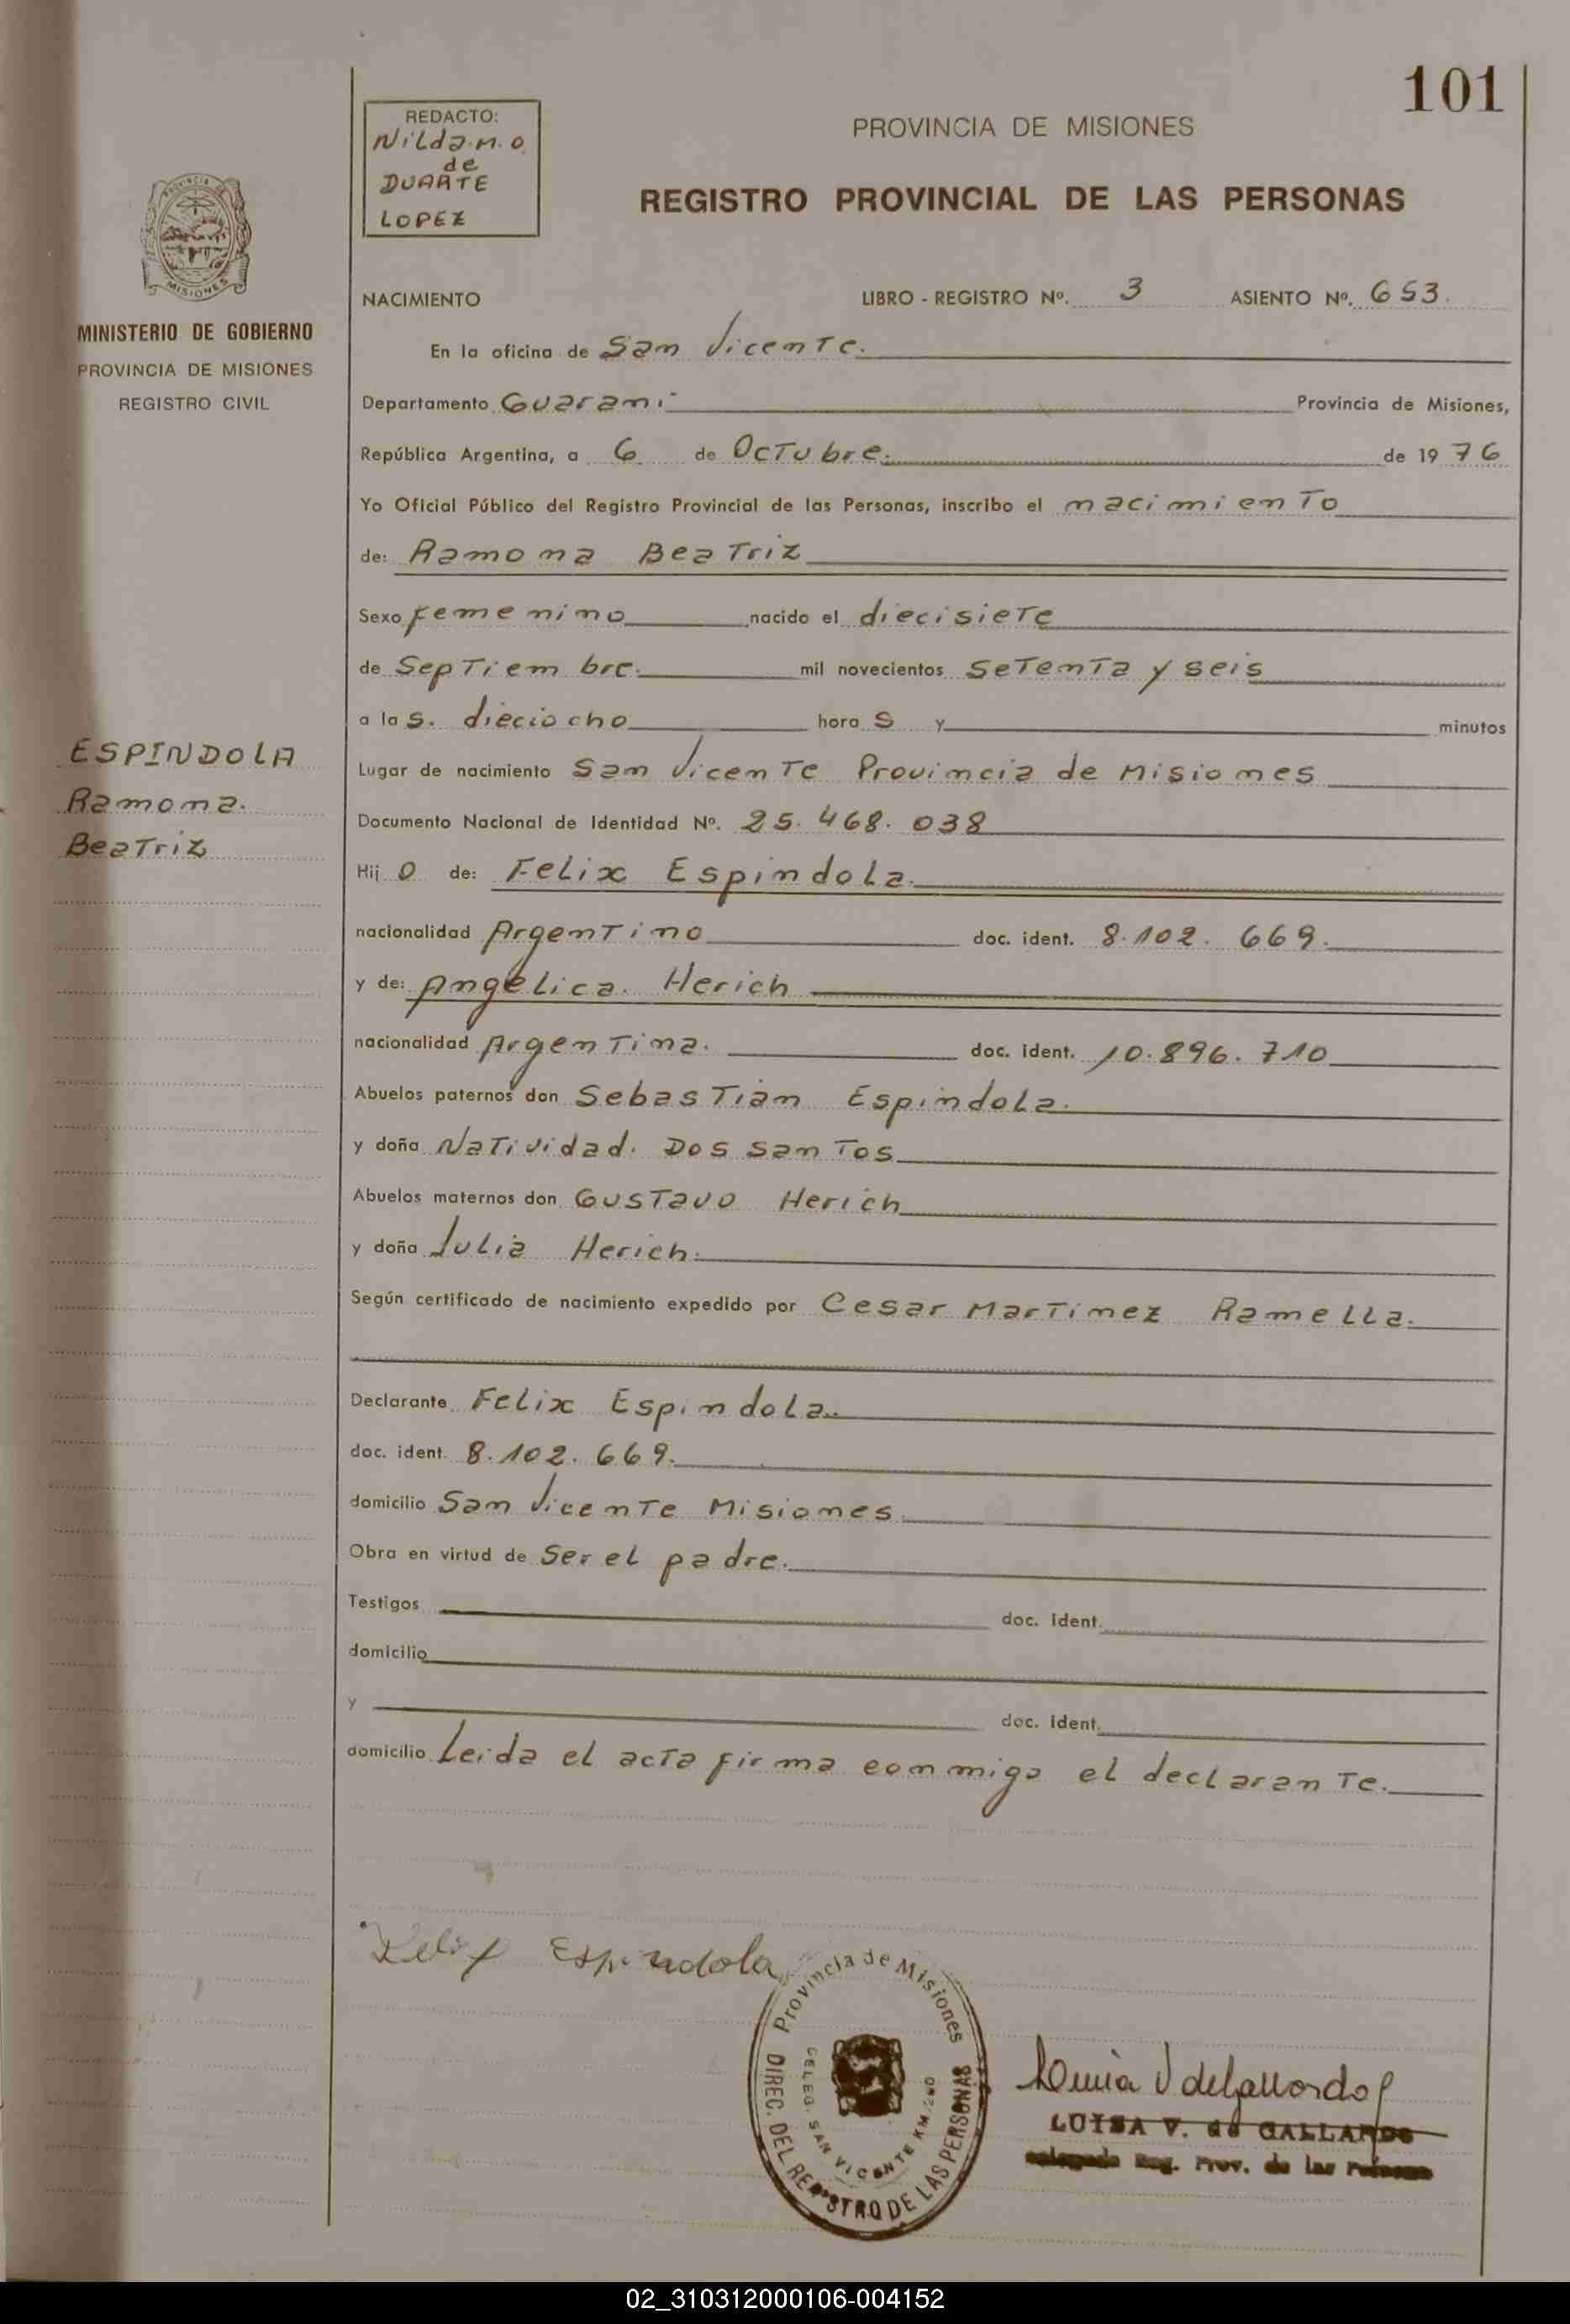 101
REDACTO:
Nilda. M. O.
de
DUARTE
LOPEZ
PROVINCIA DE MISIONES
REGISTRO PROVINCIAL DE LAS PERSONAS
MISIONES
MINISTERIO DE GOBIERNO
PROVINCIA DE MISIONES
REGISTRO CIVIL
NACIMIENTO LIBRO - REGISTRO Nº. 3 ASIENTO Nº. 653.
En la oficina de San Vicente.
Departamento Guaraní Provincia de Misiones,
República Argentina, a 6 de Octubre. de 1976
Yo Oficial Público del Registro Provincial de las Personas, inscribo el nacimiento
de: Ramona Beatriz
Sexo femenino nacido el diecisiete
de Septiembre. mil novecientos setenta y seis
a las. dieciocho horas y minutos
ESPINDOLA
Ramona.
Beatriz
Lugar de nacimiento San Vicente Provincia de Misiones
Documento Nacional de Identidad Nº. 25.468.038
Hijo de: Felix Espindola.
nacionalidad Argentino doc. ident. 8.102.669.
y de: Angélica. Herich
nacionalidad Argentina. doc. ident. 10.896.710
Abuelos paternos don Sebastián Espindola.
y doña Natividad. Dos Santos
Abuelos maternos don Gustavo Herich
y doña Julia Herich.
Según certificado de nacimiento expedido por Cesar Martinez Ramella.
Declarante Felix Espindola.
doc. ident. 8.102.669.
domicilio San Vicente Misiones.
Obra en virtud de Ser el padre.
Testigos doc. ident.
domicilio
y doc. ident.
domicilio Leida el acta firma conmigo el declarante.
Felix Espindola
Provincia de Misiones
DIREC. DEL REGISTRO DE LAS PERSONAS
DELEG. SAN VICENTE KM. 240
LUISA V. de GALLARDO
Reg. Prov. de las Personas
02_310312000106-004152